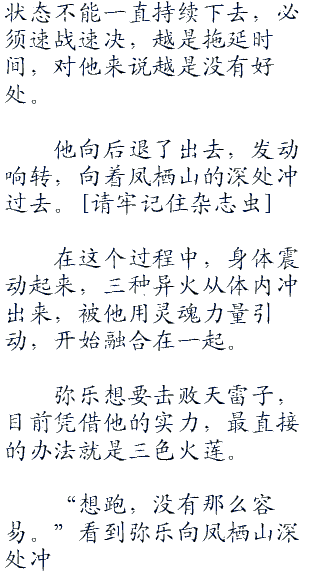 状态不能一直持续下去，必
须速战速决，越是拖延时
间，对他来说越是没有好
处。
他向后退了出去，发动
响转，向着凤栖山的深处冲
过去。[请牢记住杂志虫]
在这个过程中，身体震
动起来，三种异火从体内冲
出来，被他用灵魂力量引
动，开始融合在一起。
弥乐想要击败天雷子，
目前凭借他的实力，最直接
的办法就是三色火莲。
“想跑，没有那么容
易。”看到弥乐向凤栖山深
处冲